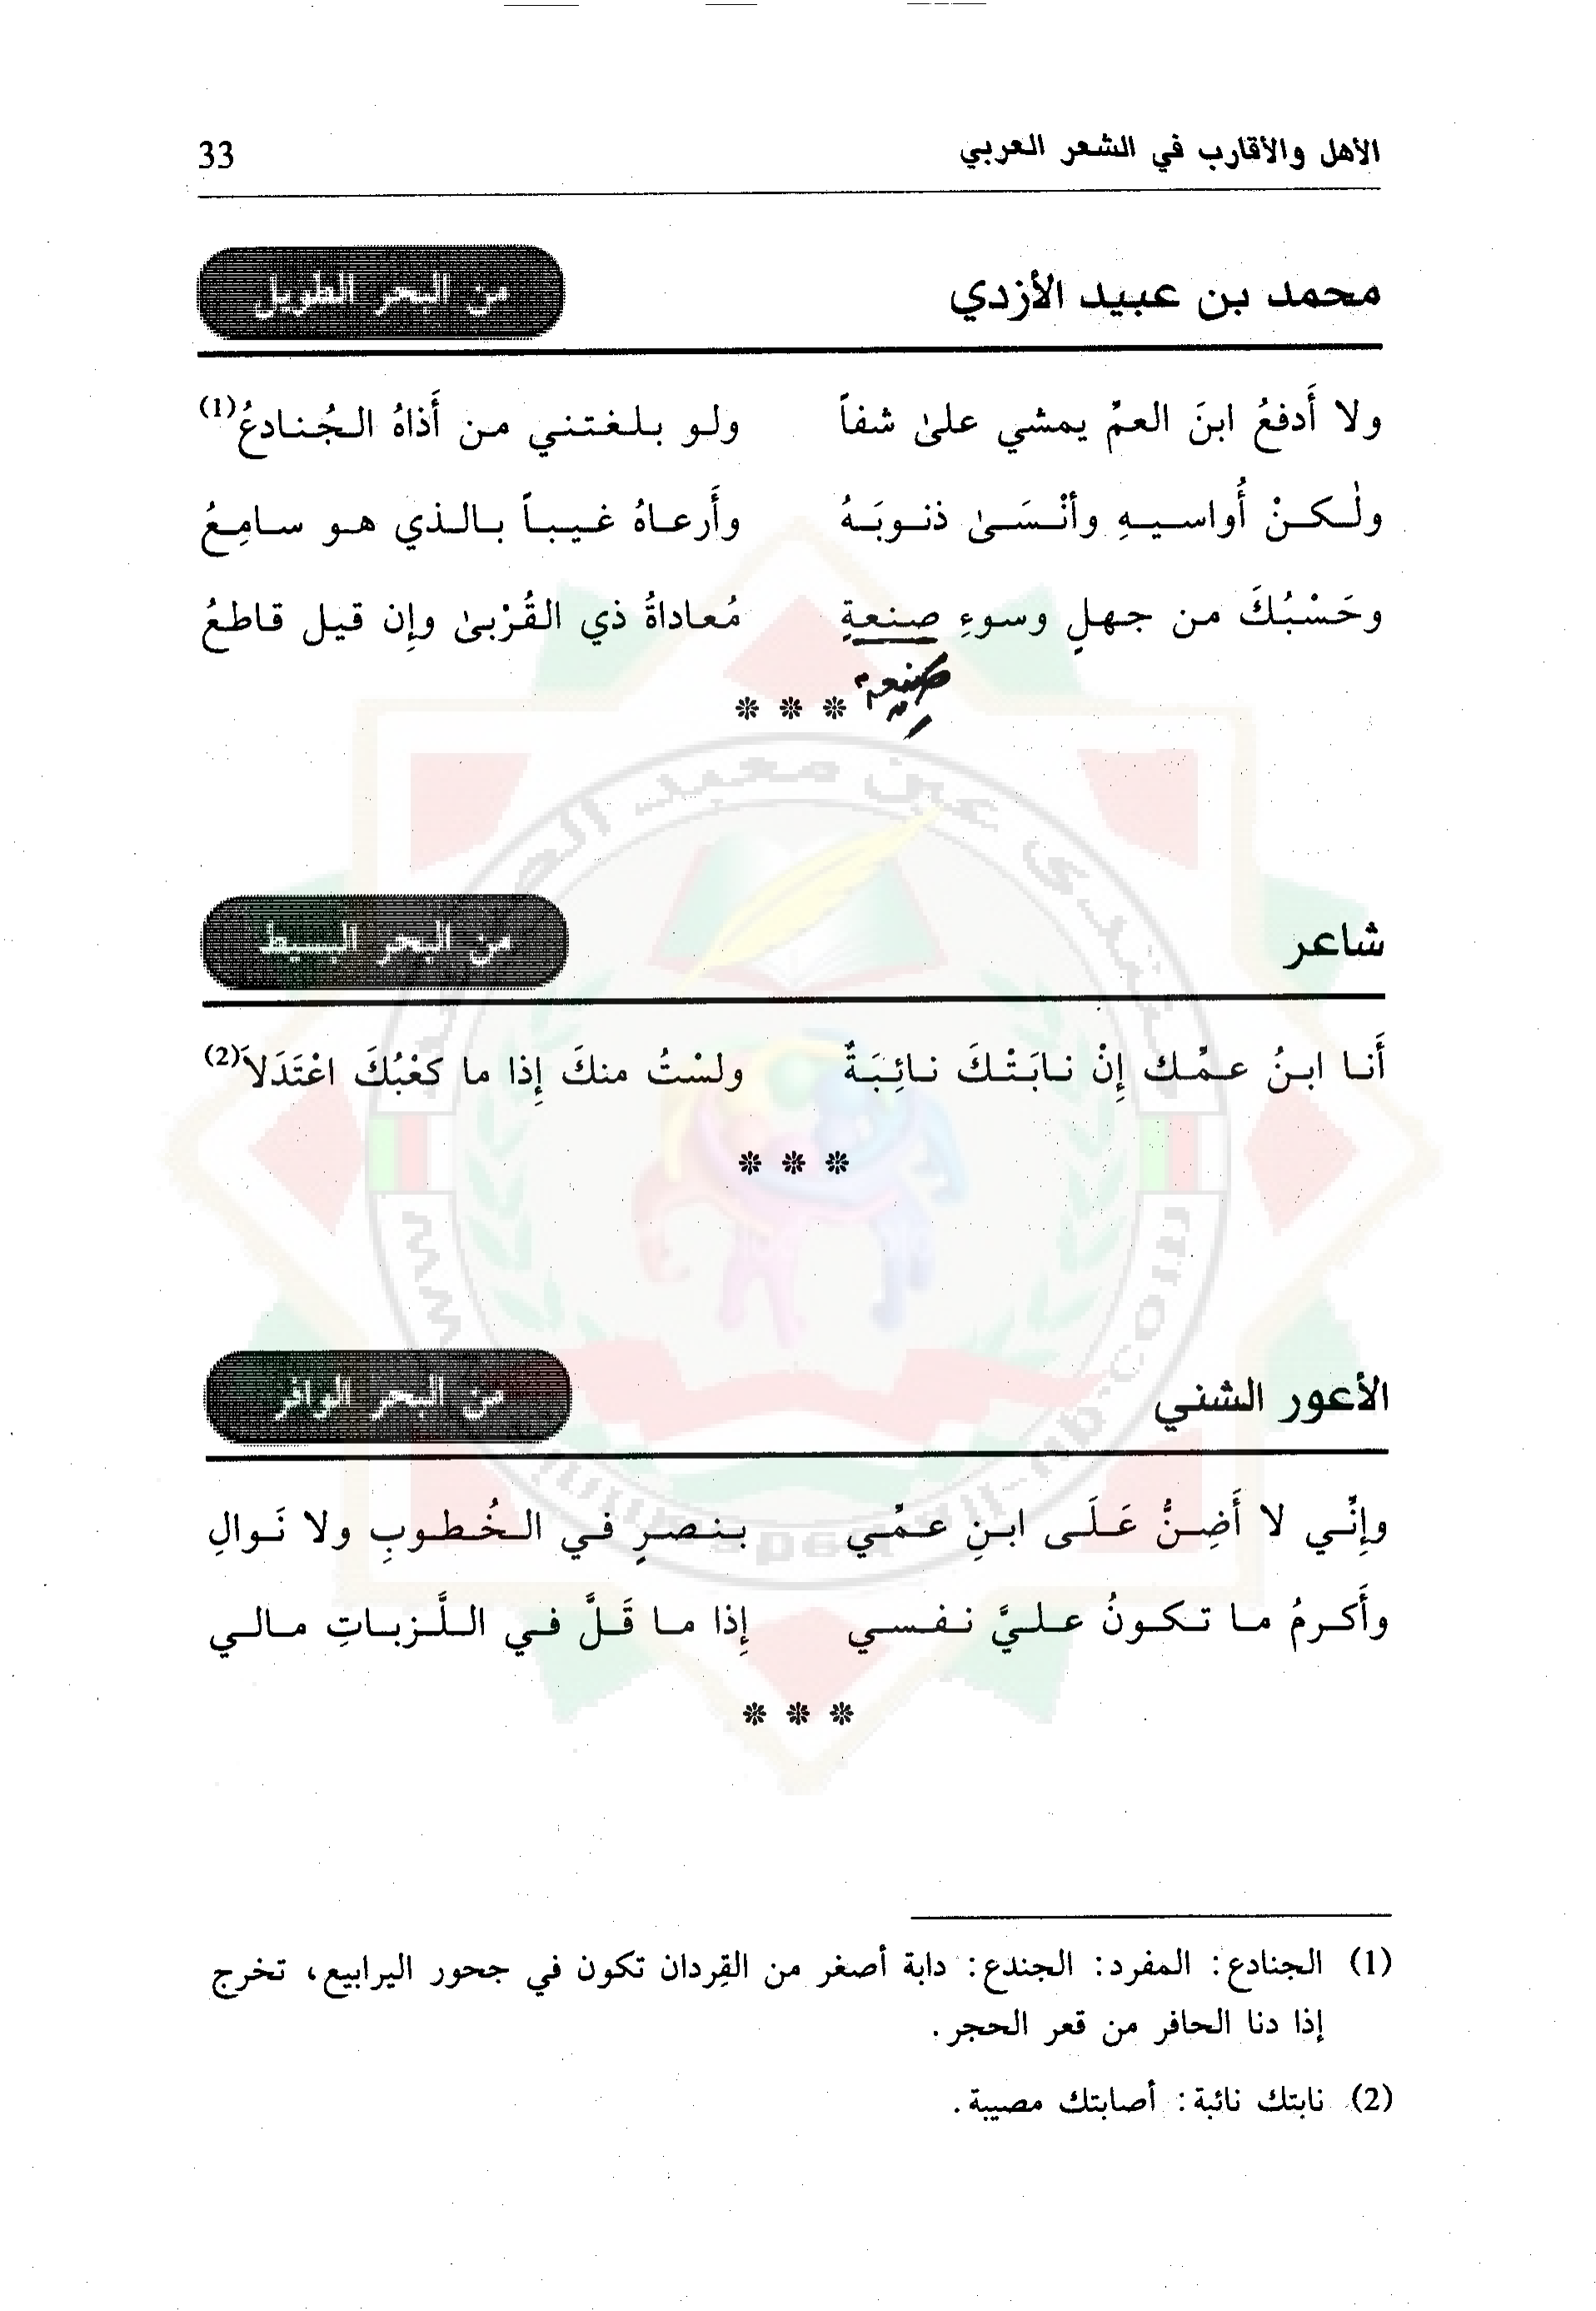 الأهل والأقارب في الشعر العربي 33
محمد بن عبيد الأزدي من البحر الطويل
ولا أَدفعُ ابنَ العمِّ يمشي علىٰ شفاً ولو بلغتني من أَذاهُ الجُنادعُ(1)
ولٰكنْ أُواسيهِ وأنْسَىٰ ذنوبَهُ وأَرعاهُ غيباً بالذي هو سامِعُ
وحَسْبُكَ من جهلٍ وسوءِ صنعةٍ مُعاداةُ ذي القُرْبىٰ وإِن قيل قاطعُ
صنيعة
* * *
شاعر من البحر البسيط
أَنا ابنُ عمِّك إِنْ نابَتْكَ نائِبَةٌ ولسْتُ منكَ إِذا ما كعْبُكَ اعْتَدَلاَ(2)
* * *
الأعور الشني من البحر الوافر
وإِنِّي لا أَضِنُّ عَلَى ابنِ عمِّي بنصرٍ في الخُطوبِ ولا نَوالِ
وأَكرمُ ما تكونُ عليَّ نفسي إِذا ما قَلَّ في اللَّزباتِ مالي
* * *
(1) الجنادع: المفرد: الجندع: دابة أصغر من القِردان تكون في جحور اليرابيع، تخرج
إذا دنا الحافر من قعر الحجر.
(2) نابتك نائبة: أصابتك مصيبة.